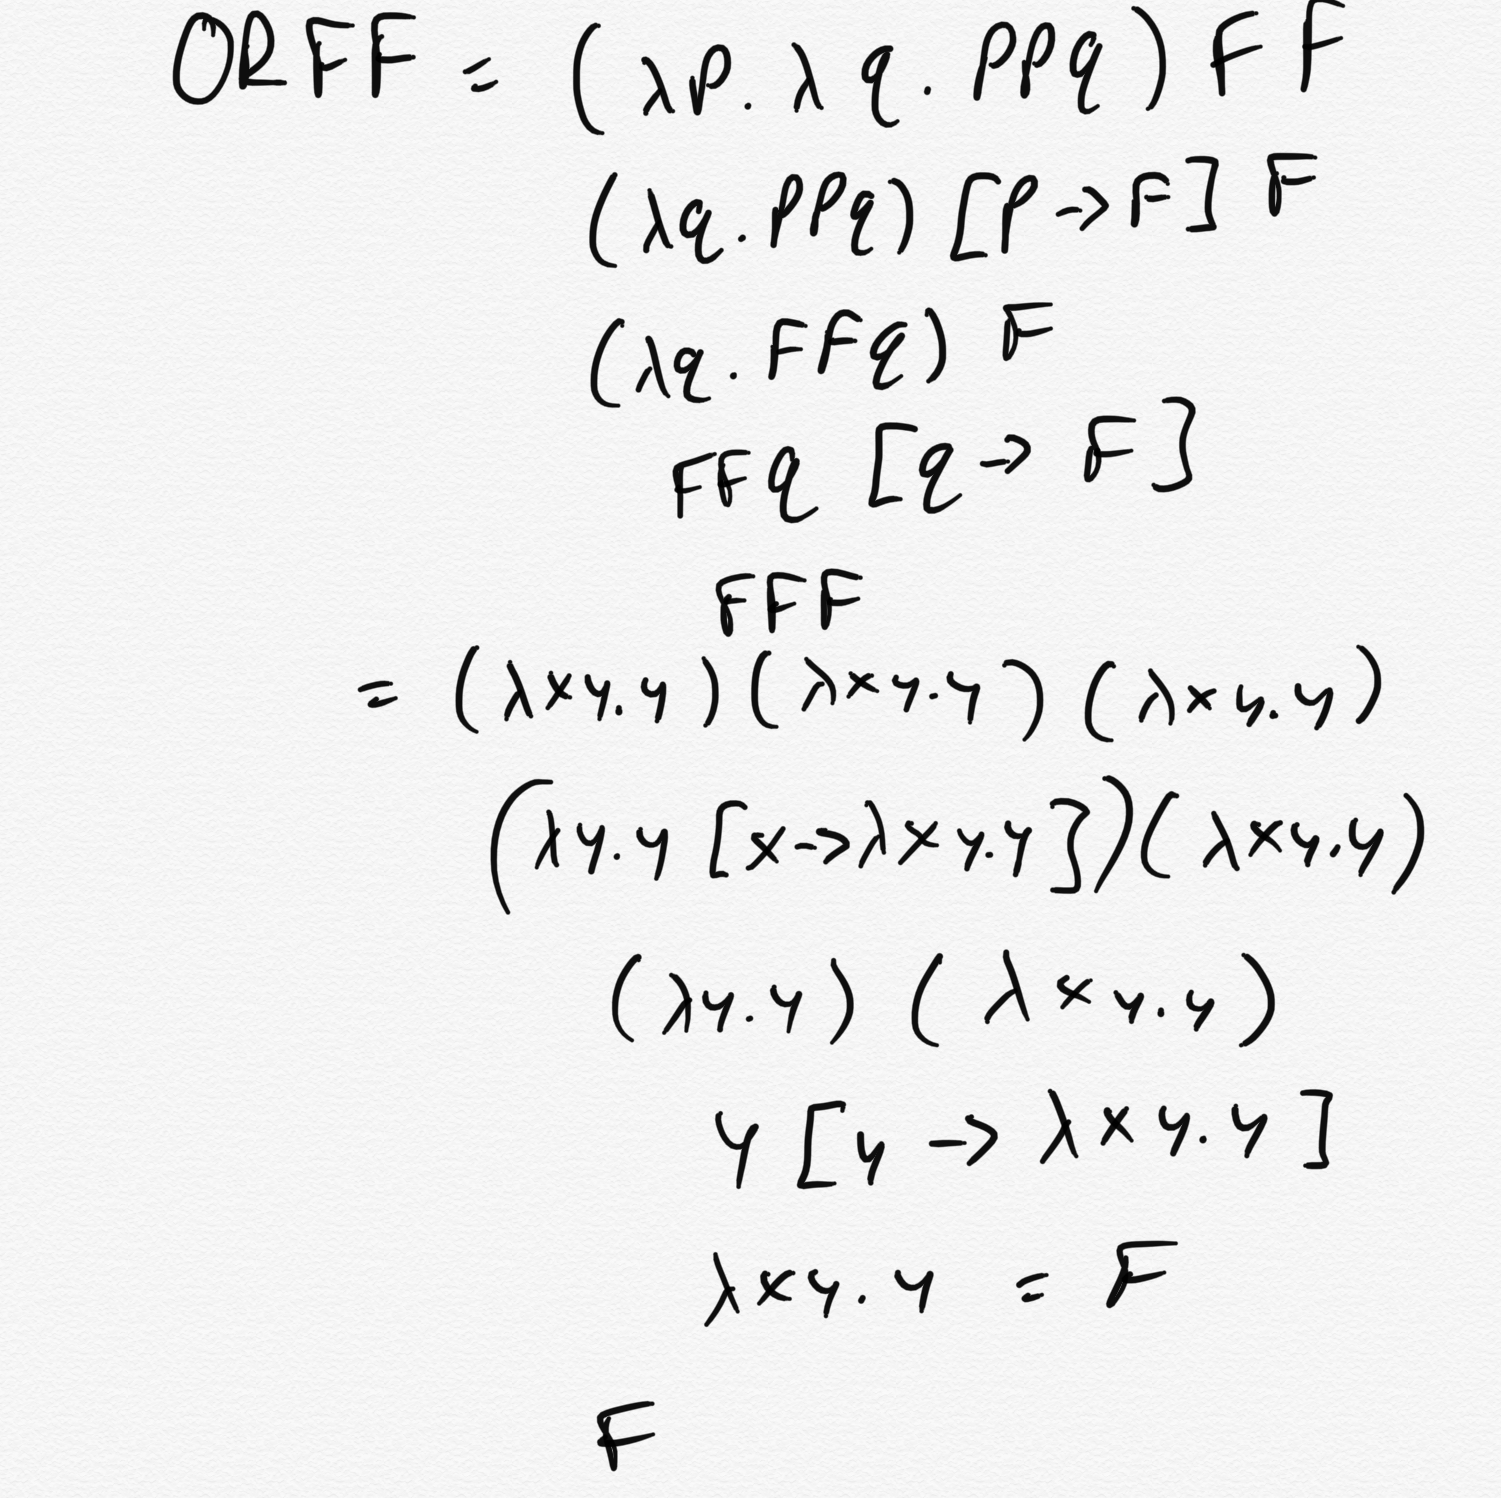 OR F F = (λp. λq. ppq) F F
(λq. ppq) [p -> F] F
(λq. F F q) F
F F q [q -> F]
F F F
= (λxy.y)(λxy.y)(λxy.y)
(λy.y [x->λxy.y])(λxy.y)
(λy.y) (λxy.y)
y [y -> λxy.y]
λxy.y = F
F